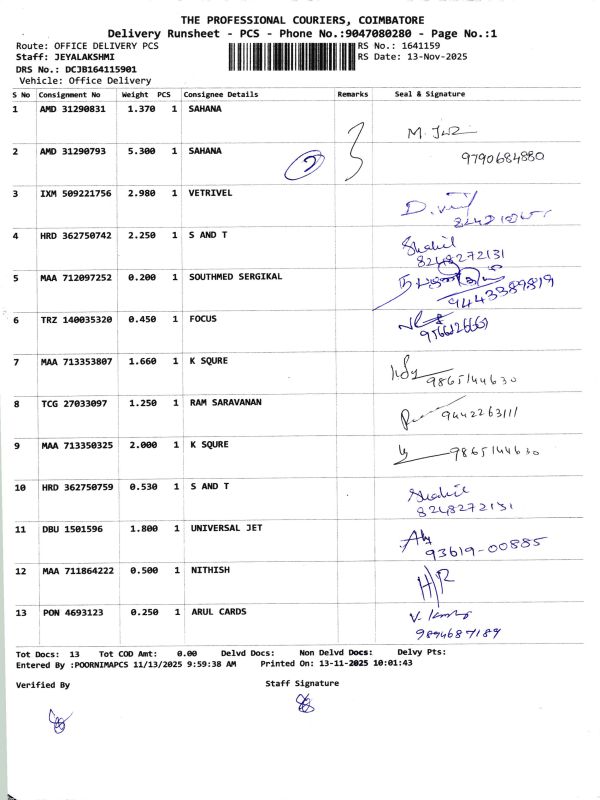 THE PROFESSIONAL COURIERS, COIMBATORE
Delivery Runsheet - PCS - Phone No.:9047080280 - Page No.:1
Route: OFFICE DELIVERY PCS RS No.: 1641159
Staff: JEYALAKSHMI RS Date: 13-Nov-2025
DRS No.: DCJB164115901
Vehicle: Office Delivery
S No Consignment No Weight PCS Consignee Details Remarks Seal & Signature
1 AMD 31290831 1.370 1 SAHANA
2 AMD 31290793 5.300 1 SAHANA 2 9790684880
3 IXM 509221756 2.980 1 VETRIVEL
4 HRD 362750742 2.250 1 S AND T Shahil
8248272131
5 MAA 712097252 0.200 1 SOUTHMED SERGIKAL
9443389819
6 TRZ 140035320 0.450 1 FOCUS
7 MAA 713353807 1.660 1 K SQURE 9865144630
8 TCG 27033097 1.250 1 RAM SARAVANAN 9442263111
9 MAA 713350325 2.000 1 K SQURE 9865144630
10 HRD 362750759 0.530 1 S AND T Shahil
8248272131
11 DBU 1501596 1.800 1 UNIVERSAL JET
93619-00885
12 MAA 711864222 0.500 1 NITHISH
13 PON 4693123 0.250 1 ARUL CARDS
9894687189
Tot Docs: 13 Tot COD Amt: 0.00 Delvd Docs: Non Delvd Docs: Delvy Pts:
Entered By :POORNIMAPCS 11/13/2025 9:59:38 AM Printed On: 13-11-2025 10:01:43
Verified By Staff Signature